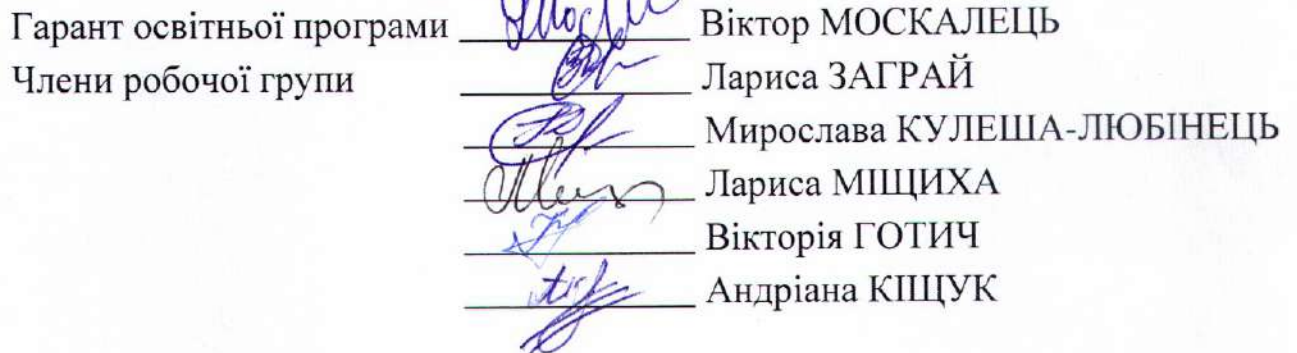 Гарант освітньої програми Віктор МОСКАЛЕЦЬ
Члени робочої групи Лариса ЗАГРАЙ
Мирослава КУЛЕША-ЛЮБІНЕЦЬ
Лариса МІЩИХА
Вікторія ГОТИЧ
Андріана КІЩУК